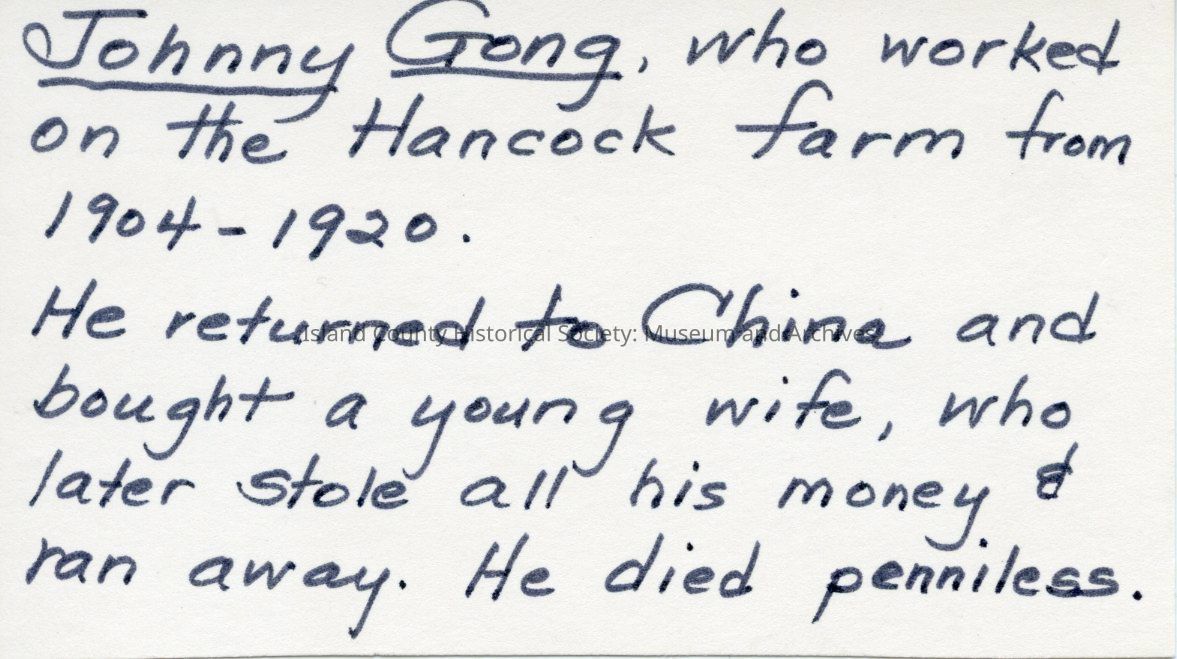 Johnny Gong, who worked
on the Hancock farm from
1904-1920.
He returned to China and
Island County Historical Society: Museum and Archives
bought a young wife, who
later stole all his money &
ran away. He died penniless.